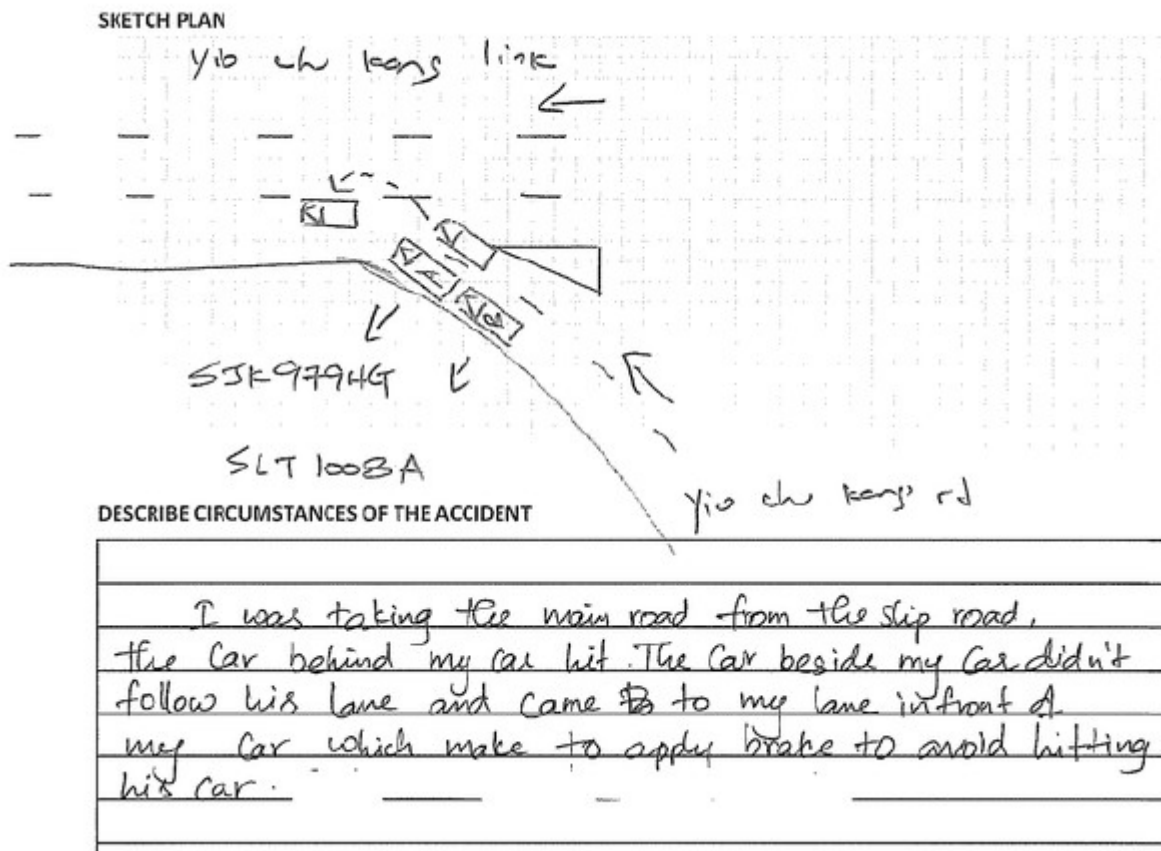 SKETCH PLAN
yio chu kang link
A
B
SJK9794G
SLT 1008A
yio chu kang rd
DESCRIBE CIRCUMSTANCES OF THE ACCIDENT
I was taking the main road from the slip road,
the Car behind my car hit. The Car beside my Car didn't
follow his lane and came to my lane infront of
my Car which make to apply brake to avoid hitting
his car.